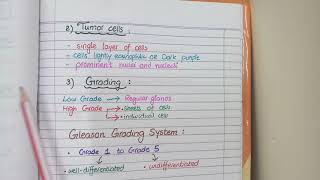 2) Tumor cells:
- single layer of cells
- cells lightly eosinophilic or Dark purple
- prominent nuclei and nucleoli
3) Grading:
Low Grade → Regular glands
High Grade → • sheets of cells
• individual cell
Gleason Grading System:
• Grade 1 to Grade 5
well-differentiated undifferentiated